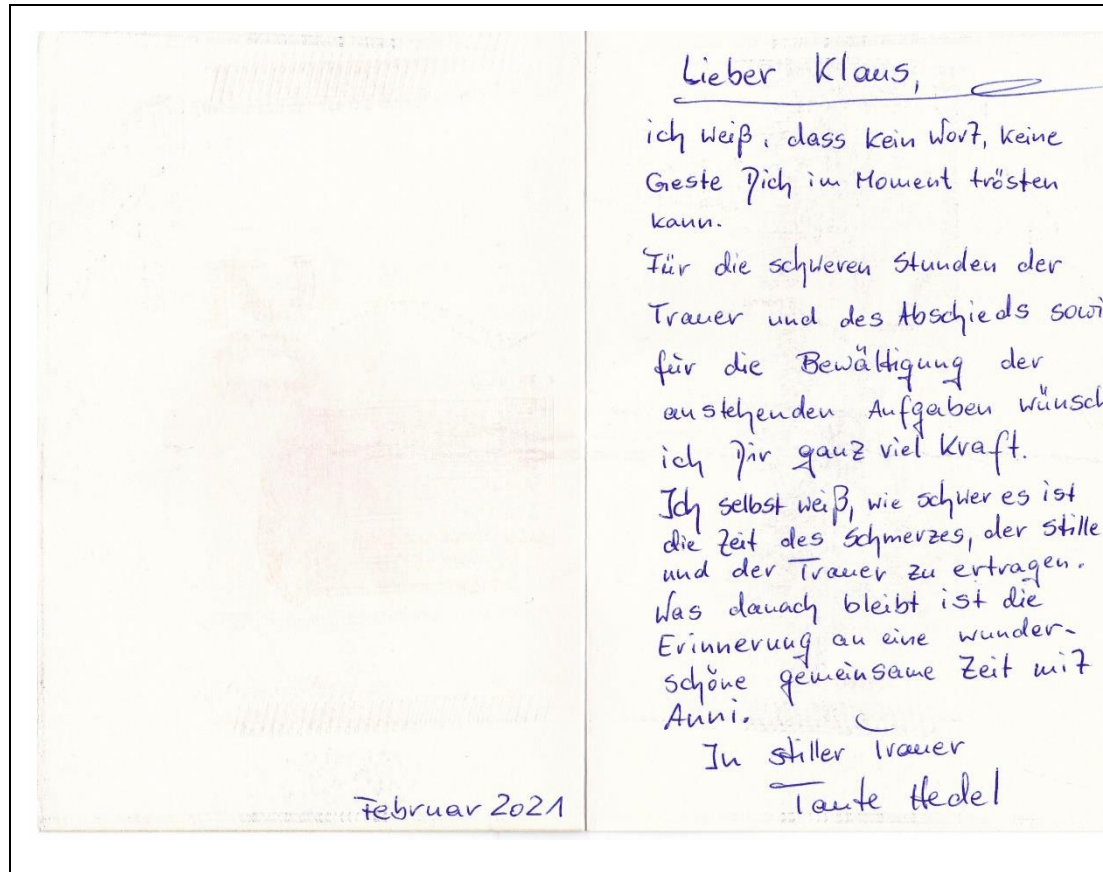 Lieber Klaus,
ich weiß, dass kein Wort, keine
Geste Dich im Moment trösten
kann.
Für die schweren Stunden der
Trauer und des Abschieds sowi
für die Bewältigung der
anstehenden Aufgaben wünsch
ich Dir ganz viel Kraft.
Ich selbst weiß, wie schwer es ist
die Zeit des Schmerzes, der Stille
und der Trauer zu ertragen.
Was danach bleibt ist die
Erinnerung an eine wunder-
schöne gemeinsame Zeit mit
Anni.
In stiller Trauer
Tante Hedel
Februar 2021